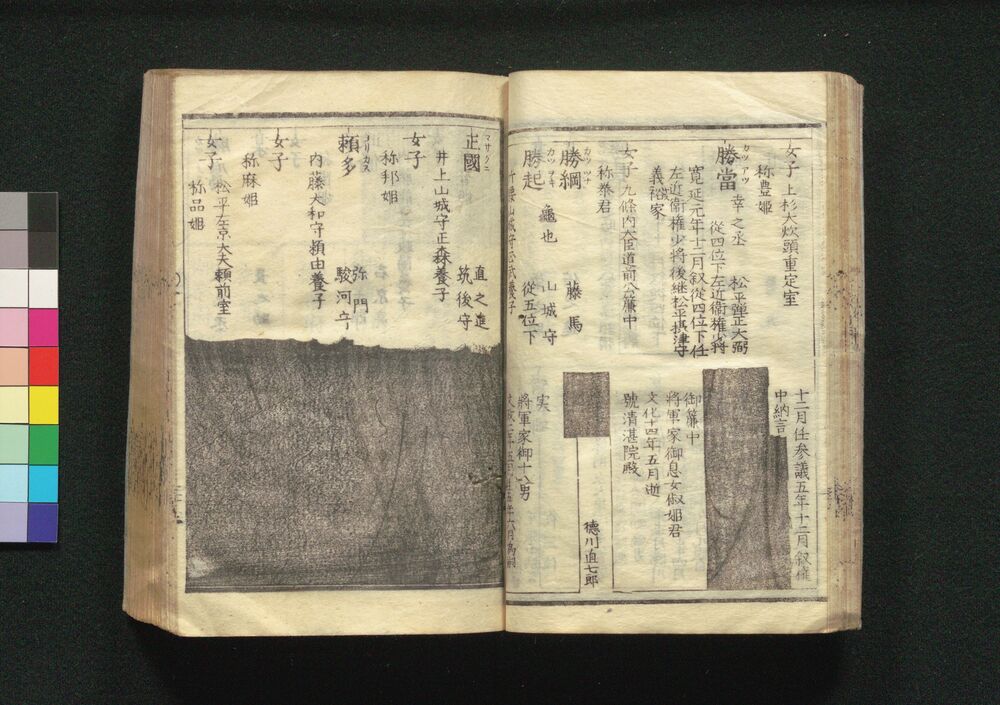 女子 上杉大炊頭重定室
称豊姫
勝當 カツアツ
幸之丞 松平弾正大弼
従四位下左近衛権少将
寛延元年十二月叙従四位下任
左近衛権少将後継松平摂津守
義裕家
女子 九條内大臣道前公簾中
勝綱 カツツナ
藤馬
勝起 カツオキ
亀也 山城守
従五位下
十二月任参議五年十二月叙権
中納言
御簾中
将軍家御息女俶姫君
文化十四年五月逝
號清湛院殿
徳川直七郎
実
将軍家御十八男
正國 マサクニ
直之進
筑後守
井上山城守正森養子
女子
称邦姫
頼多 ヨリカス
弥門
駿河守
内藤大和守頼由養子
女子
称麻姫
女子 松平左京大夫頼前室
称品姫